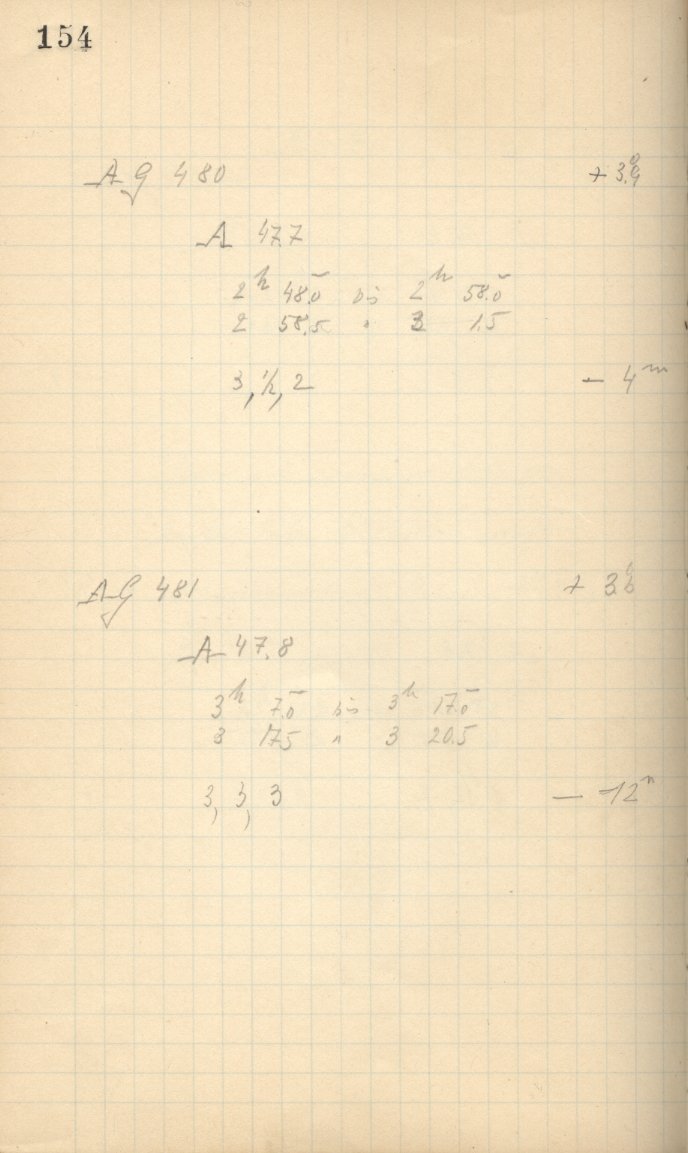 154
AG 480 + 3.°9
A 47.7
2h 48.0m bis 2h 58.0m
2 58.5 " 3 1.5
3, 1/2, 2 - 4m
AG 481 + 3.°6
A 47.8
3h 7.0m bis 3h 17.0m
3 17.5 " 3 20.5
3, 3, 3 - 12m